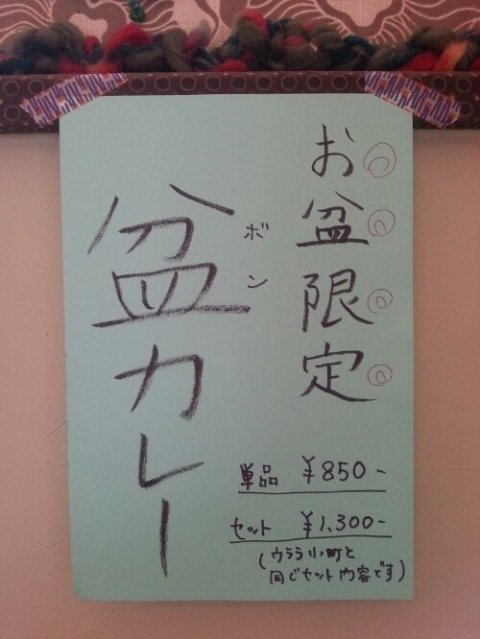 お盆限定
ボン
盆カレー
単品 ¥850-
セット ¥1,300-
(ウララ小町と
同じセット内容です)